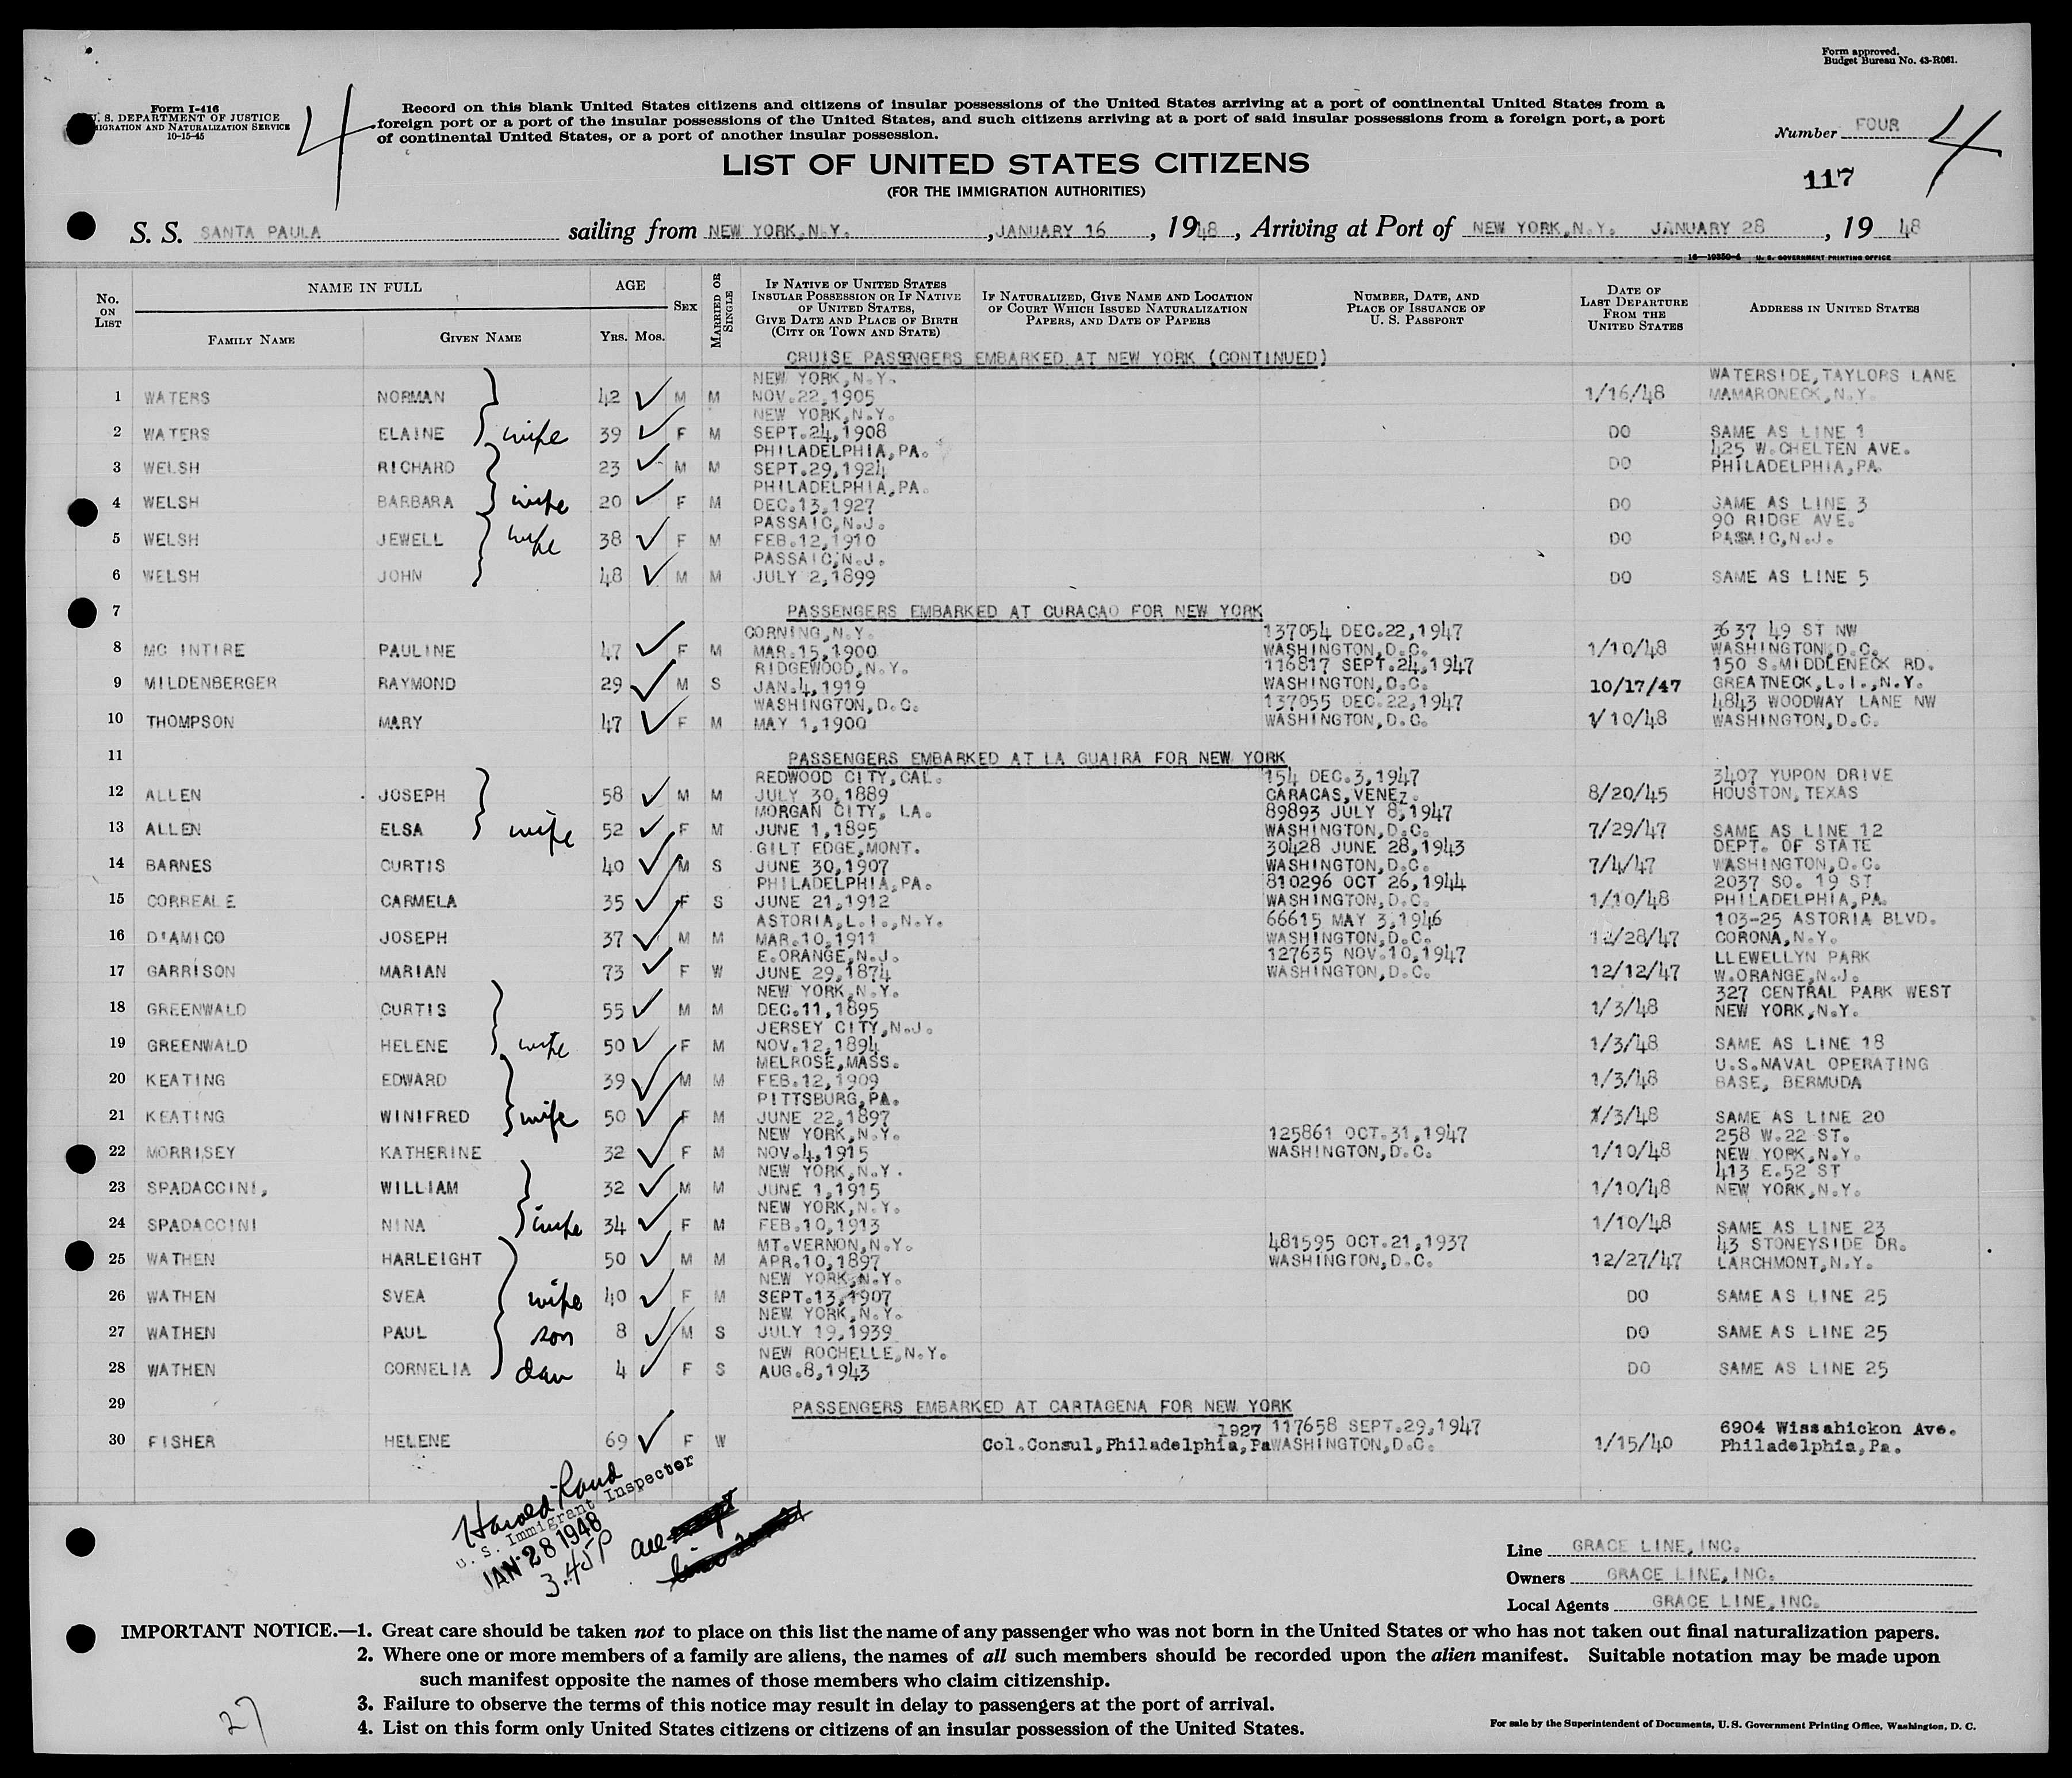 Form approved.
Budget Bureau No. 43-R061.
Form I-416
U. S. DEPARTMENT OF JUSTICE
IMMIGRATION AND NATURALIZATION SERVICE
10-15-45
4
Record on this blank United States citizens and citizens of insular possessions of the United States arriving at a port of continental United States from a
foreign port or a port of the insular possessions of the United States, and such citizens arriving at a port of said insular possessions from a foreign port, a port
of continental United States, or a port of another insular possession.
Number FOUR
4
LIST OF UNITED STATES CITIZENS
(FOR THE IMMIGRATION AUTHORITIES)
117
S. S. SANTA PAULA sailing from NEW YORK,N.Y. , JANUARY 16 , 1948 , Arriving at Port of NEW YORK,N.Y. JANUARY 28 , 19 48
16—19350-4 U. S. GOVERNMENT PRINTING OFFICE
No. ON LIST NAME IN FULL FAMILY NAME GIVEN NAME AGE YRS. MOS. SEX MARRIED OR SINGLE IF NATIVE OF UNITED STATES INSULAR POSSESSION OR IF NATIVE OF UNITED STATES, GIVE DATE AND PLACE OF BIRTH (CITY OR TOWN AND STATE) IF NATURALIZED, GIVE NAME AND LOCATION OF COURT WHICH ISSUED NATURALIZATION PAPERS, AND DATE OF PAPERS NUMBER, DATE, AND PLACE OF ISSUANCE OF U. S. PASSPORT DATE OF LAST DEPARTURE FROM THE UNITED STATES ADDRESS IN UNITED STATES
CRUISE PASSENGERS EMBARKED AT NEW YORK (CONTINUED)
1 WATERS NORMAN 42 M M NEW YORK,N.Y. NOV.22,1905 1/16/48 WATERSIDE,TAYLORS LANE MAMARONECK,N.Y.
2 WATERS ELAINE wife 39 F M NEW YORK,N.Y. SEPT.24,1908 DO SAME AS LINE 1
3 WELSH RICHARD 23 M M PHILADELPHIA,PA. SEPT.29,1924 DO 425 W.CHELTEN AVE. PHILADELPHIA,PA.
4 WELSH BARBARA wife 20 F M PHILADELPHIA,PA. DEC.13,1927 DO SAME AS LINE 3
5 WELSH JEWELL wife 38 F M PASSAIC,N.J. FEB.12,1910 DO 90 RIDGE AVE. PASSAIC,N.J.
6 WELSH JOHN 48 M M PASSAIC,N.J. JULY 2,1899 DO SAME AS LINE 5
7 PASSENGERS EMBARKED AT CURACAO FOR NEW YORK
8 MC INTIRE PAULINE 47 F M CORNING,N.Y. MAR.15,1900 137054 DEC.22,1947 WASHINGTON,D.C. 1/10/48 3637 49 ST NW WASHINGTON,D.C.
9 MILDENBERGER RAYMOND 29 M S RIDGEWOOD,N.Y. JAN.4,1919 116817 SEPT.24,1947 WASHINGTON,D.C. 10/17/47 150 S.MIDDLENECK RD. GREATNECK,L.I.,N.Y.
10 THOMPSON MARY 47 F M WASHINGTON,D.C. MAY 1,1900 137055 DEC.22,1947 WASHINGTON,D.C. 1/10/48 4843 WOODWAY LANE NW WASHINGTON,D.C.
11 PASSENGERS EMBARKED AT LA GUAIRA FOR NEW YORK
12 ALLEN JOSEPH 58 M M REDWOOD CITY,CAL. JULY 30,1889 154 DEC.3,1947 CARACAS,VENEZ. 8/20/45 3407 YUPON DRIVE HOUSTON,TEXAS
13 ALLEN ELSA wife 52 F M MORGAN CITY, LA. JUNE 1,1895 89893 JULY 8,1947 WASHINGTON,D.C. 7/29/47 SAME AS LINE 12
14 BARNES CURTIS 40 M S GILT EDGE,MONT. JUNE 30,1907 30428 JUNE 28,1943 WASHINGTON,D.C. 7/4/47 DEPT. OF STATE WASHINGTON,D.C.
15 CORREALE CARMELA 35 F S PHILADELPHIA,PA. JUNE 21,1912 810296 OCT 26,1944 WASHINGTON,D.C. 1/10/48 2037 SO. 19 ST PHILADELPHIA,PA.
16 D'AMICO JOSEPH 37 M M ASTORIA,L.I.,N.Y. MAR.10,1911 66615 MAY 3,1946 WASHINGTON,D.C. 12/28/47 103-25 ASTORIA BLVD. CORONA,N.Y.
17 GARRISON MARIAN 73 F W E.ORANGE,N.J. JUNE 29,1874 127635 NOV.10,1947 WASHINGTON,D.C. 12/12/47 LLEWELLYN PARK W.ORANGE,N.J.
18 GREENWALD CURTIS 55 M M NEW YORK,N.Y. DEC.11,1895 1/3/48 327 CENTRAL PARK WEST NEW YORK,N.Y.
19 GREENWALD HELENE wife 50 F M JERSEY CITY,N.J. NOV.12,1894 1/3/48 SAME AS LINE 18
20 KEATING EDWARD 39 M M MELROSE,MASS. FEB.12,1909 1/3/48 U.S.NAVAL OPERATING BASE, BERMUDA
21 KEATING WINIFRED wife 50 F M PITTSBURG,PA. JUNE 22,1897 1/3/48 SAME AS LINE 20
22 MORRISEY KATHERINE 32 F M NEW YORK,N.Y. NOV.4,1915 125861 OCT.31,1947 WASHINGTON,D.C. 1/10/48 258 W.22 ST. NEW YORK,N.Y.
23 SPADACCINI, WILLIAM 32 M M NEW YORK,N.Y. JUNE 1,1915 1/10/48 413 E.52 ST NEW YORK,N.Y.
24 SPADACCINI NINA wife 34 F M NEW YORK,N.Y. FEB.10,1913 1/10/48 SAME AS LINE 23
25 WATHEN HARLEIGHT 50 M M MT.VERNON,N.Y. APR.10,1897 481595 OCT.21,1937 WASHINGTON,D.C. 12/27/47 43 STONEYSIDE DR. LARCHMONT,N.Y.
26 WATHEN SVEA wife 40 F M NEW YORK,N.Y. SEPT.13,1907 DO SAME AS LINE 25
27 WATHEN PAUL son 8 M S NEW YORK,N.Y. JULY 19,1939 DO SAME AS LINE 25
28 WATHEN CORNELIA dau 4 F S NEW ROCHELLE,N.Y. AUG.8,1943 DO SAME AS LINE 25
29 PASSENGERS EMBARKED AT CARTAGENA FOR NEW YORK
30 FISHER HELENE 69 F W 1927 Col.Consul,Philadelphia,Pa 117658 SEPT.29,1947 WASHINGTON,D.C. 1/15/40 6904 Wissahickon Ave. Philadelphia,Pa.
Harold Rand
U. S. Immigrant Inspector
JAN 28 1948
3.45P
all
Line GRACE LINE,INC.
Owners GRACE LINE,INC.
Local Agents GRACE LINE,INC.
IMPORTANT NOTICE.—1. Great care should be taken not to place on this list the name of any passenger who was not born in the United States or who has not taken out final naturalization papers.
2. Where one or more members of a family are aliens, the names of all such members should be recorded upon the alien manifest. Suitable notation may be made upon
such manifest opposite the names of those members who claim citizenship.
3. Failure to observe the terms of this notice may result in delay to passengers at the port of arrival.
4. List on this form only United States citizens or citizens of an insular possession of the United States.
27
For sale by the Superintendent of Documents, U. S. Government Printing Office, Washington, D. C.